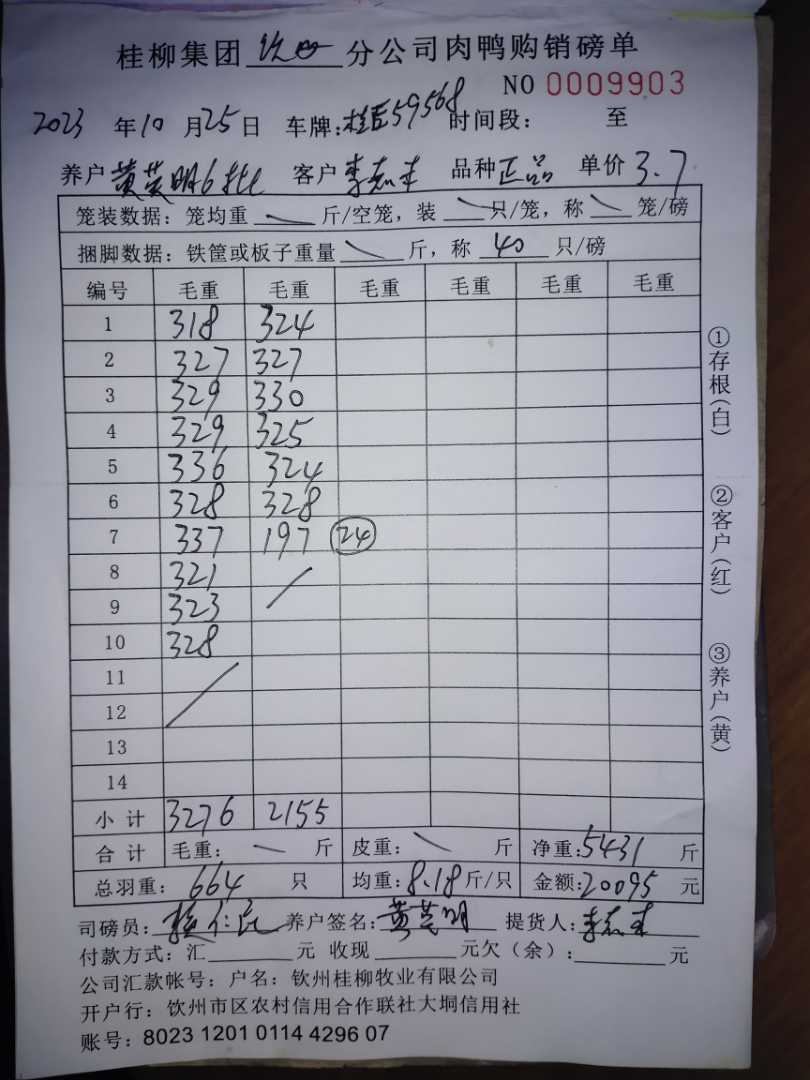 桂柳集团 钦州 分公司肉鸭购销磅单
NO 0009903
2023 年 10 月 25 日 车牌: 桂E59568 时间段: 至
养户 黄芸明6批 客户 李志丰 品种 正品 单价 3.7
笼装数据: 笼均重 斤/空笼, 装 只/笼, 称 笼/磅
捆脚数据: 铁筐或板子重量 斤, 称 40 只/磅
编号 毛重 毛重 毛重 毛重 毛重 毛重
1 318 324
2 327 327
3 329 330
4 329 325
5 336 324
6 328 328
7 337 197 24
8 321
9 323
10 328
11
12
13
14
小计 3276 2155
合计 毛重: 斤 皮重: 斤 净重: 5431 斤
总羽重: 664 只 均重: 8.18 斤/只 金额: 20095 元
司磅员: 养户签名: 黄芸明 提货人: 李志丰
付款方式: 汇 元 收现 元欠(余): 元
公司汇款帐号: 户名: 钦州桂柳牧业有限公司
开户行: 钦州市区农村信用合作联社大垌信用社
账号: 8023 1201 0114 4296 07
①存根(白)
②客户(红)
③养户(黄)